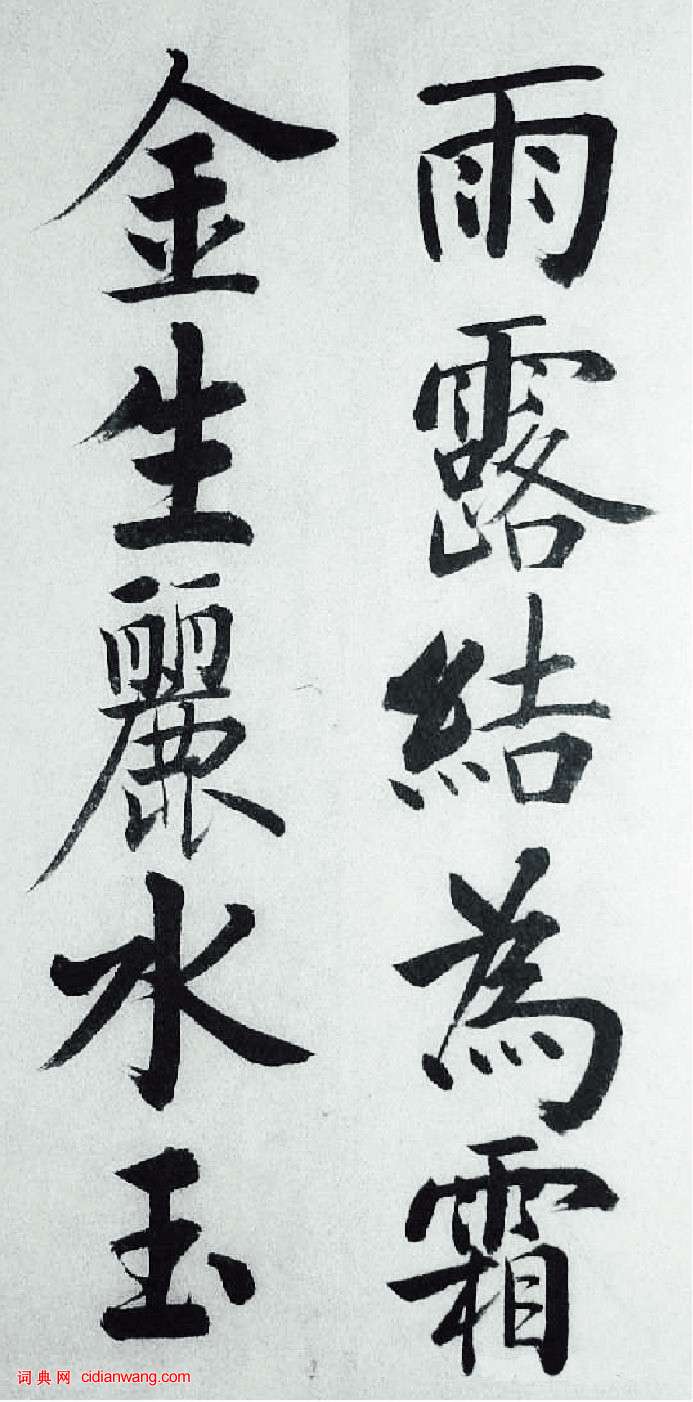 雨露結為霜
金生麗水玉
词典网 cidianwang.com